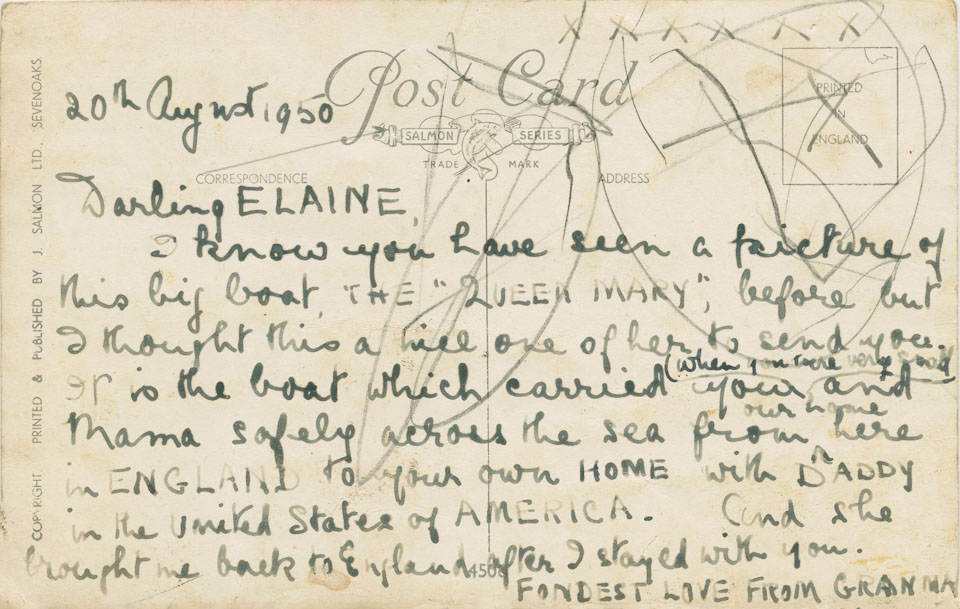 Post Card
20th August 1950
SALMON SERIES
TRADE MARK
PRINTED
IN
ENGLAND
CORRESPONDENCE
ADDRESS
X X X X X X
Darling ELAINE,
I know you have seen a picture of
this big boat, THE "QUEEN MARY", before but
I thought this a nice one of her, to send you.
(when you were very small)
It is the boat which carried you, and
our home
Mama safely across the sea from here
in ENGLAND to your own HOME with DADDY
in the United States of AMERICA. And she
brought me back to England after I stayed with you.
FONDEST LOVE FROM GRANMA
COPYRIGHT PRINTED & PUBLISHED BY J. SALMON LTD. SEVENOAKS